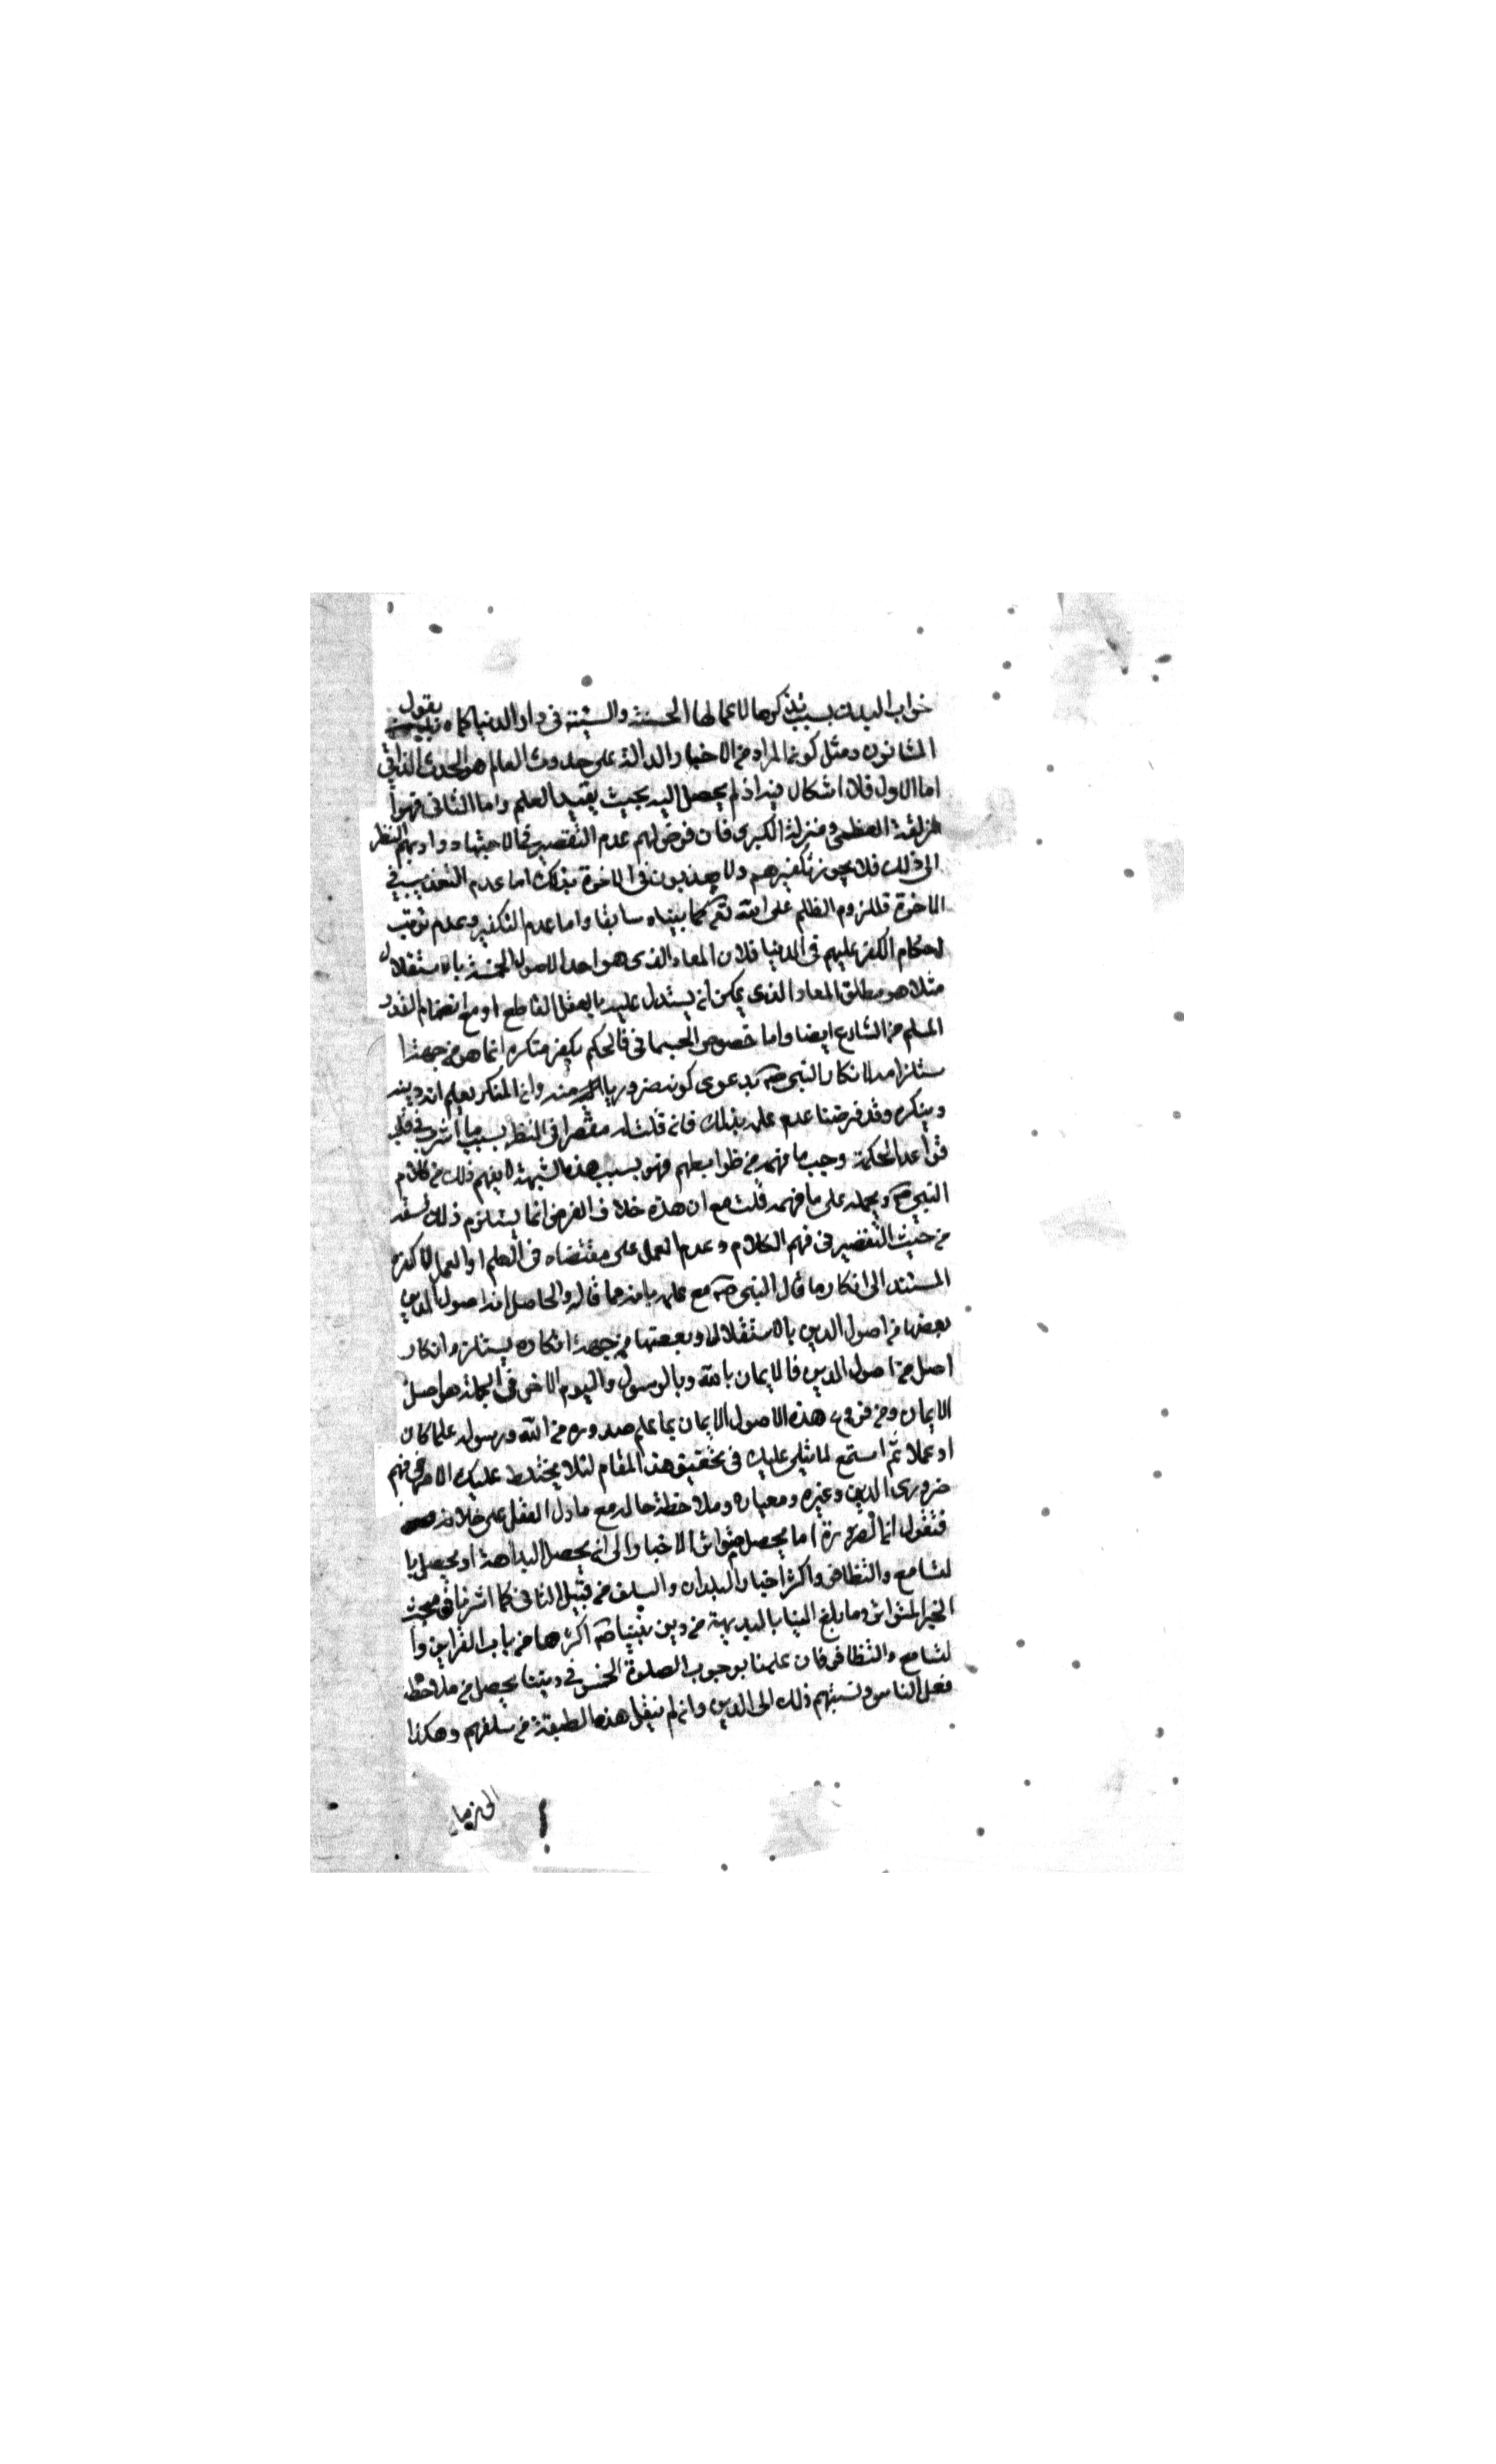 خراب البدن بسبب تذكرها لاعمالها الحسنة والسيئة فى دار الدنيا كما يقول
المشائون ومثل كون المراد من الاخبار الدالة على حدوث العالم هو الحدوث الذاتى
اما الاول فلا اشكال فيه اذ لم يحصل اليه بحيث يفيد العلم واما الثانى فهو ا
لمزلقة العظمى ومنزلة الكبرى فان فرض لهم عدم التقصير فى الاجتهاد واديهم النظر
الى ذلك فلا يجوز تكفيرهم ولا يعذبون فى الاخرة بذلك اما عدم التعذيب فى
الاخرة فللزوم الظلم على الله تعالى كما بيناه سابقا واما عدم التكفير وعدم ترتب
احكام الكفر عليهم فى الدنيا فلان المعاد الذى هو احد الاصول الخمسة بالاستقلال
مثلا هو مطلق المعاد الذى يمكن ان يستدل عليه بالعقل القاطع او مع انضمام القدر
المسلم من الشارع ايضا واما خصوص الجسمانى فالحكم بكفر منكره انما هو من جهة ا
ستلزامه لانكار النبى ص بدعوى كونه ضروريا منه وان المنكر يعلم انه دينه
وينكره وقد فرضنا عدم علمه بذلك فان قلت انه مقصر فى النظر بسبب ما اشرب فى قلبه
قواعد الحكمة وجب ما فهمه من ظوابطهم فهو بسبب هذه الشبهة لا يفهم ذلك من كلام
النبى ص ويحمله على ما فهمه قلت مع ان هذه خلاف الفرض انما يستلزم ذلك فسقه
من حيث التقصير فى فهم الكلام وعدم العمل على مقتضاه فى العلم او العمل لا كفره
المستند الى انكار ما قال النبى ص مع علمه بانه مما قاله والحاصل ان اصول الدين
بعضها من اصول الدين بالاستقلال وبعضها من جهة ان انكاره يستلزم انكار
اصل من اصول الدين فالايمان بالله وبالرسول واليوم الاخر فى الجملة هو اصل
الايمان ومن فروع هذه الاصول الايمان بما علم صدوره من الله ورسوله علما كان
او عملا ثم استمع لما يتلى عليك فى تحقيق هذا المقام لئلا يختلط عليك الامر فى فهم
ضرورى الدين وغيره ومعياره وملاحظة حاله مع ما دل العقل على خلافه
فنقول ان الضرورة اما يحصل بتواتر الاخبار الى ان يحصل البداهة او يحصل با
لتسامع والتظافر واكثر اخبار البلدان والسلف من قبيل الثانى كما اشرنا فى مبحث
الخبر المتواتر وما بلغ الينا بالبديهة من دين نبينا ص اكثرها من باب القراين وا
لتسامع والتظافر فان علمنا بوجوب الصلوة الخمس فى ديننا يحصل من ملاحظة
فعل الناس ونسبتهم ذلك الى الدين وان لم ينقل هذه الطبقة من سلفهم وهكذا
الى زمان